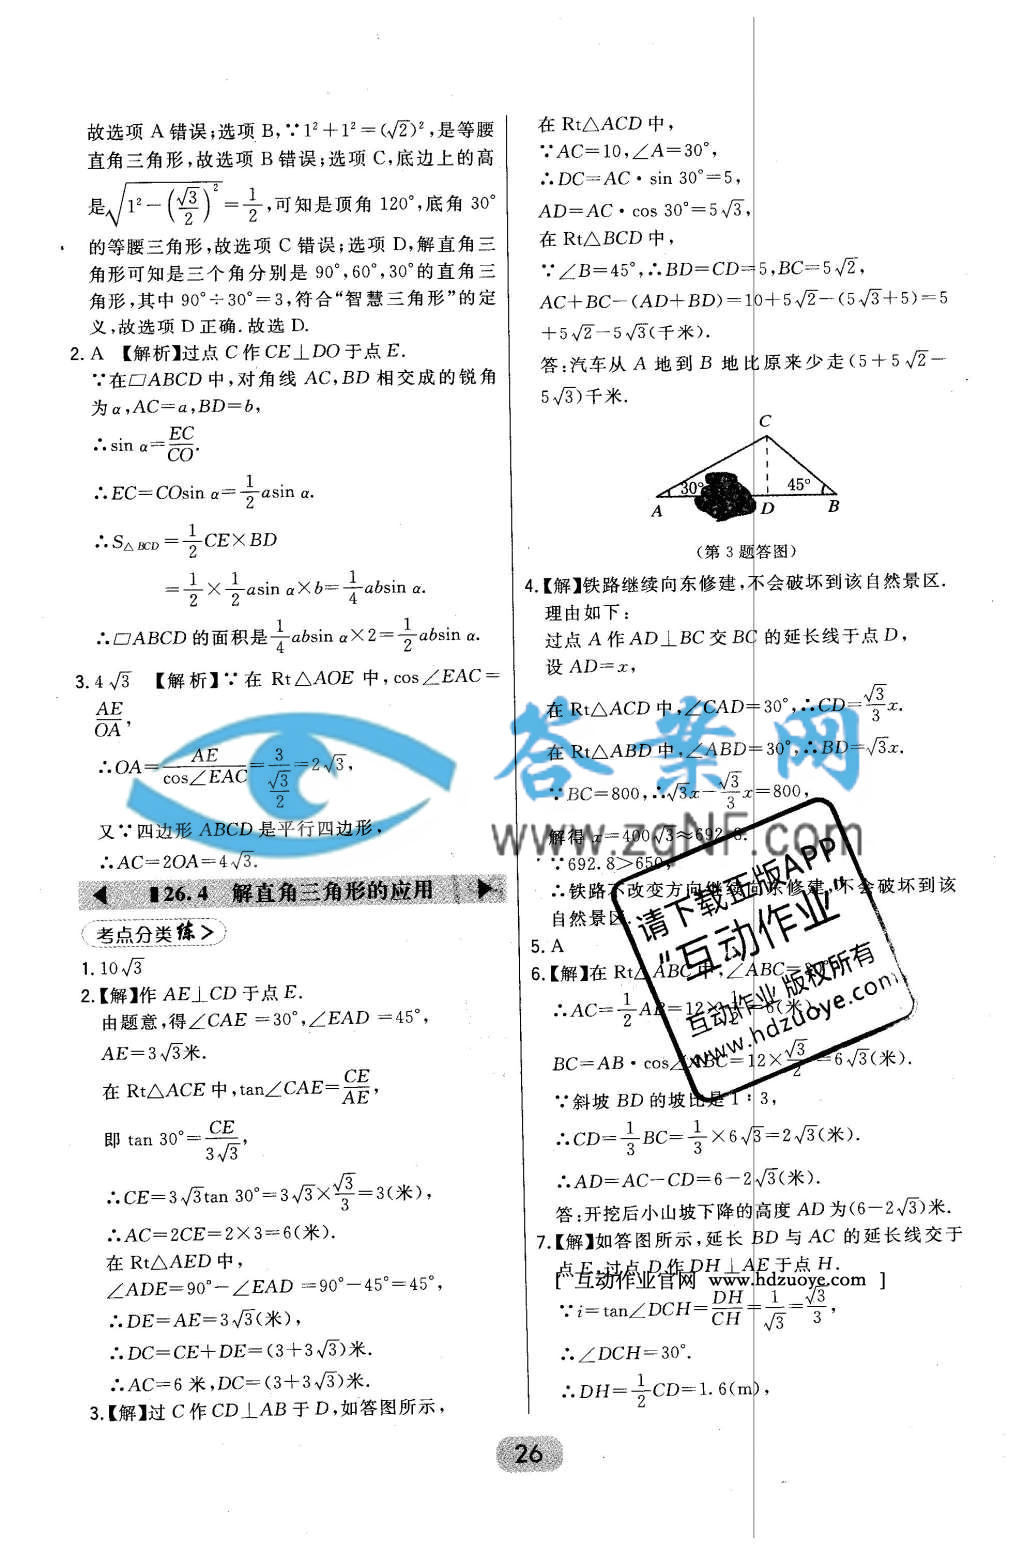 故选项 A 错误;选项 B,∵1²+1²=(√2)²,是等腰
直角三角形,故选项 B 错误;选项 C,底边上的高
是√(1²-(√3/2)²)=1/2,可知是顶角 120°,底角 30°
的等腰三角形,故选项 C 错误;选项 D,解直角三
角形可知是三个角分别是 90°,60°,30°的直角三
角形,其中 90°÷30°=3,符合“智慧三角形”的定
义,故选项 D 正确.故选 D.
2. A 【解析】过点 C 作 CE⊥DO 于点 E.
∵在▱ABCD 中,对角线 AC,BD 相交成的锐角
为α,AC=a,BD=b,
∴sin α=EC/CO.
∴EC=COsin α=1/2 asin α.
∴S△BCD=1/2 CE×BD
=1/2×1/2 asin α×b=1/4 absin α.
∴▱ABCD 的面积是1/4 absin α×2=1/2 absin α.
3. 4√3 【解析】∵在 Rt△AOE 中,cos∠EAC=
AE/OA,
∴OA=AE/cos∠EAC=3/(√3/2)=2√3,
又∵四边形 ABCD 是平行四边形,
∴AC=2OA=4√3.
26.4 解直角三角形的应用
考点分类练>
1. 10√3
2.【解】作 AE⊥CD 于点 E.
由题意,得∠CAE=30°,∠EAD=45°,
AE=3√3米.
在 Rt△ACE 中,tan∠CAE=CE/AE,
即 tan 30°=CE/3√3,
∴CE=3√3tan 30°=3√3×√3/3=3(米),
∴AC=2CE=2×3=6(米).
在 Rt△AED 中,
∠ADE=90°-∠EAD=90°-45°=45°,
∴DE=AE=3√3(米),
∴DC=CE+DE=(3+3√3)米.
∴AC=6 米,DC=(3+3√3)米.
3.【解】过 C 作 CD⊥AB 于 D,如答图所示,
在 Rt△ACD 中,
∵AC=10,∠A=30°,
∴DC=AC·sin 30°=5,
AD=AC·cos 30°=5√3,
在 Rt△BCD 中,
∵∠B=45°,∴BD=CD=5,BC=5√2,
AC+BC-(AD+BD)=10+5√2-(5√3+5)=5
+5√2-5√3(千米).
答:汽车从 A 地到 B 地比原来少走(5+5√2-
5√3)千米.
C
30° 45°
A D B
(第 3 题答图)
4.【解】铁路继续向东修建,不会破坏到该自然景区.
理由如下:
过点 A 作 AD⊥BC 交 BC 的延长线于点 D,
设 AD=x,
在 Rt△ACD 中,∠CAD=30°,∴CD=√3/3 x.
在 Rt△ABD 中,∠ABD=30°,∴BD=√3x.
∵BC=800,∴√3x-√3/3 x=800,
解得 x=400√3≈692.8.
∵692.8>650,
∴铁路不改变方向继续向东修建,不会破坏到该
自然景区.
5. A
6.【解】在 Rt△ABC 中,∠ABC=30°,
∴AC=1/2 AB=12×1/2=6(米),
BC=AB·cos∠ABC=12×√3/2=6√3(米).
∵斜坡 BD 的坡比是 1∶3,
∴CD=1/3 BC=1/3×6√3=2√3(米).
∴AD=AC-CD=6-2√3(米).
答:开挖后小山坡下降的高度 AD 为(6-2√3)米.
7.【解】如答图所示,延长 BD 与 AC 的延长线交于
点 E,过点 D 作 DH⊥AE 于点 H.
[ 互动作业官网 www.hdzuoye.com ]
∵i=tan∠DCH=DH/CH=1/√3=√3/3,
∴∠DCH=30°.
∴DH=1/2 CD=1.6(m),
26
答案网
www.zqNF.com
请下载正版APP
“互动作业”
互动作业 版权所有
www.hdzuoye.com